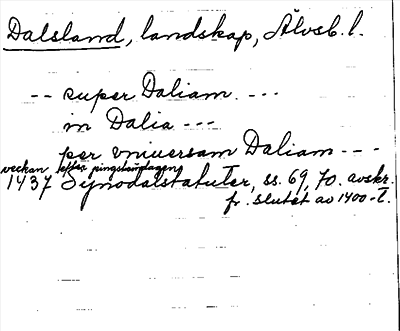 Dalsland, landskap, Älvsb. l.
-- super Daliam ---
in Dalia ---
per vniuersam Daliam ---
veckan efter pingstsöndagen
1437 Synodalstatuter, ss. 69, 70. avskr.
fr. slutet av 1400-t.